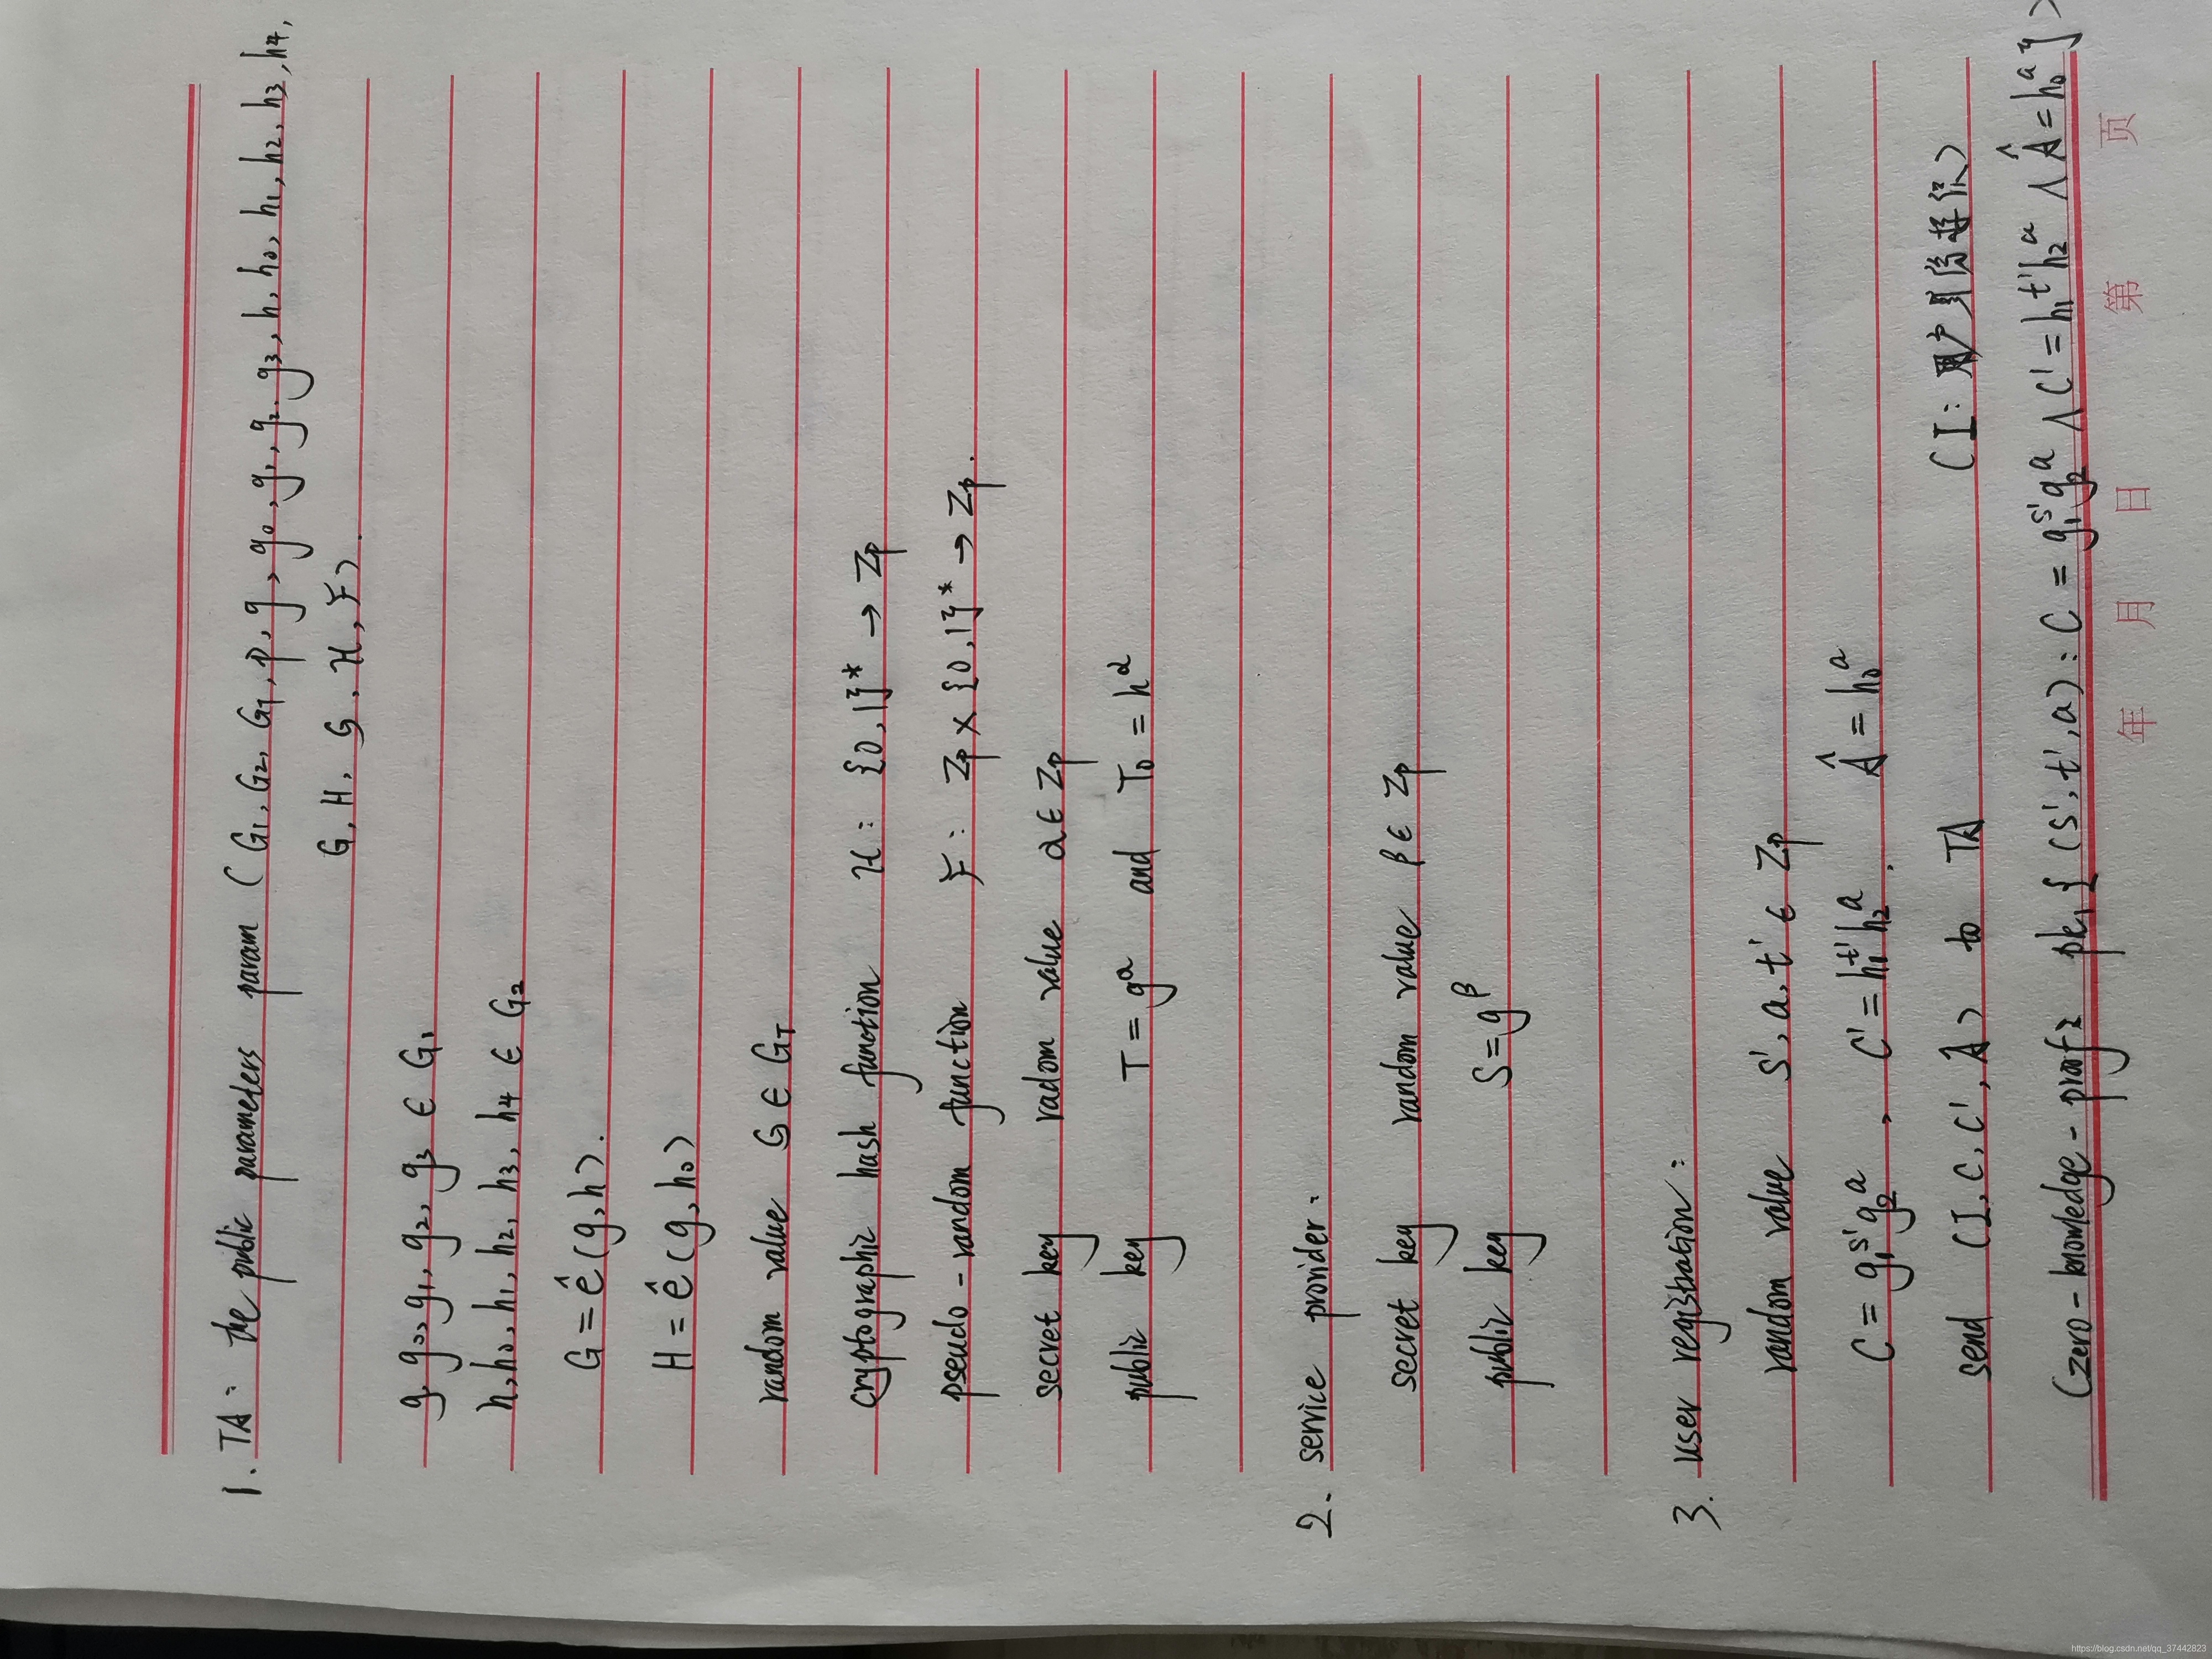 1. TA: the public parameters param (G₁, G₂, G_T, p, g, g₀, g₁, g₂, g₃, h, h₀, h₁, h₂, h₃, h₄,
G, H, 𝒢, ℋ, F).
g, g₀, g₁, g₂, g₃ ∈ G₁
h, h₀, h₁, h₂, h₃, h₄ ∈ G₂
G = ê(g, h).
H = ê(g, h₀)
random value 𝒢 ∈ G_T
cryptographic hash function ℋ: {0,1}* → Zp
pseudo-random function F: Zp × {0,1}* → Zp.
secret key radom value α ∈ Zp
public key T = g^α and T₀ = h^α
2. service provider:
secret key random value β ∈ Zp
public key S = g^β
3. user registration:
random value s', a, t' ∈ Zp
C = g₁^s' g₂^a, C' = h₁^t' h₂^a. Â = h₀^a
send (I, C, C', Â) to TA (I: 用户)
(zero-knowledge-proof: pk₁{(s', t', a): C = g₁^s' g₂^a ∧ C' = h₁^t' h₂^a ∧ Â = h₀^a})
年 月 日 第 页
https://blog.csdn.net/qq_37442823